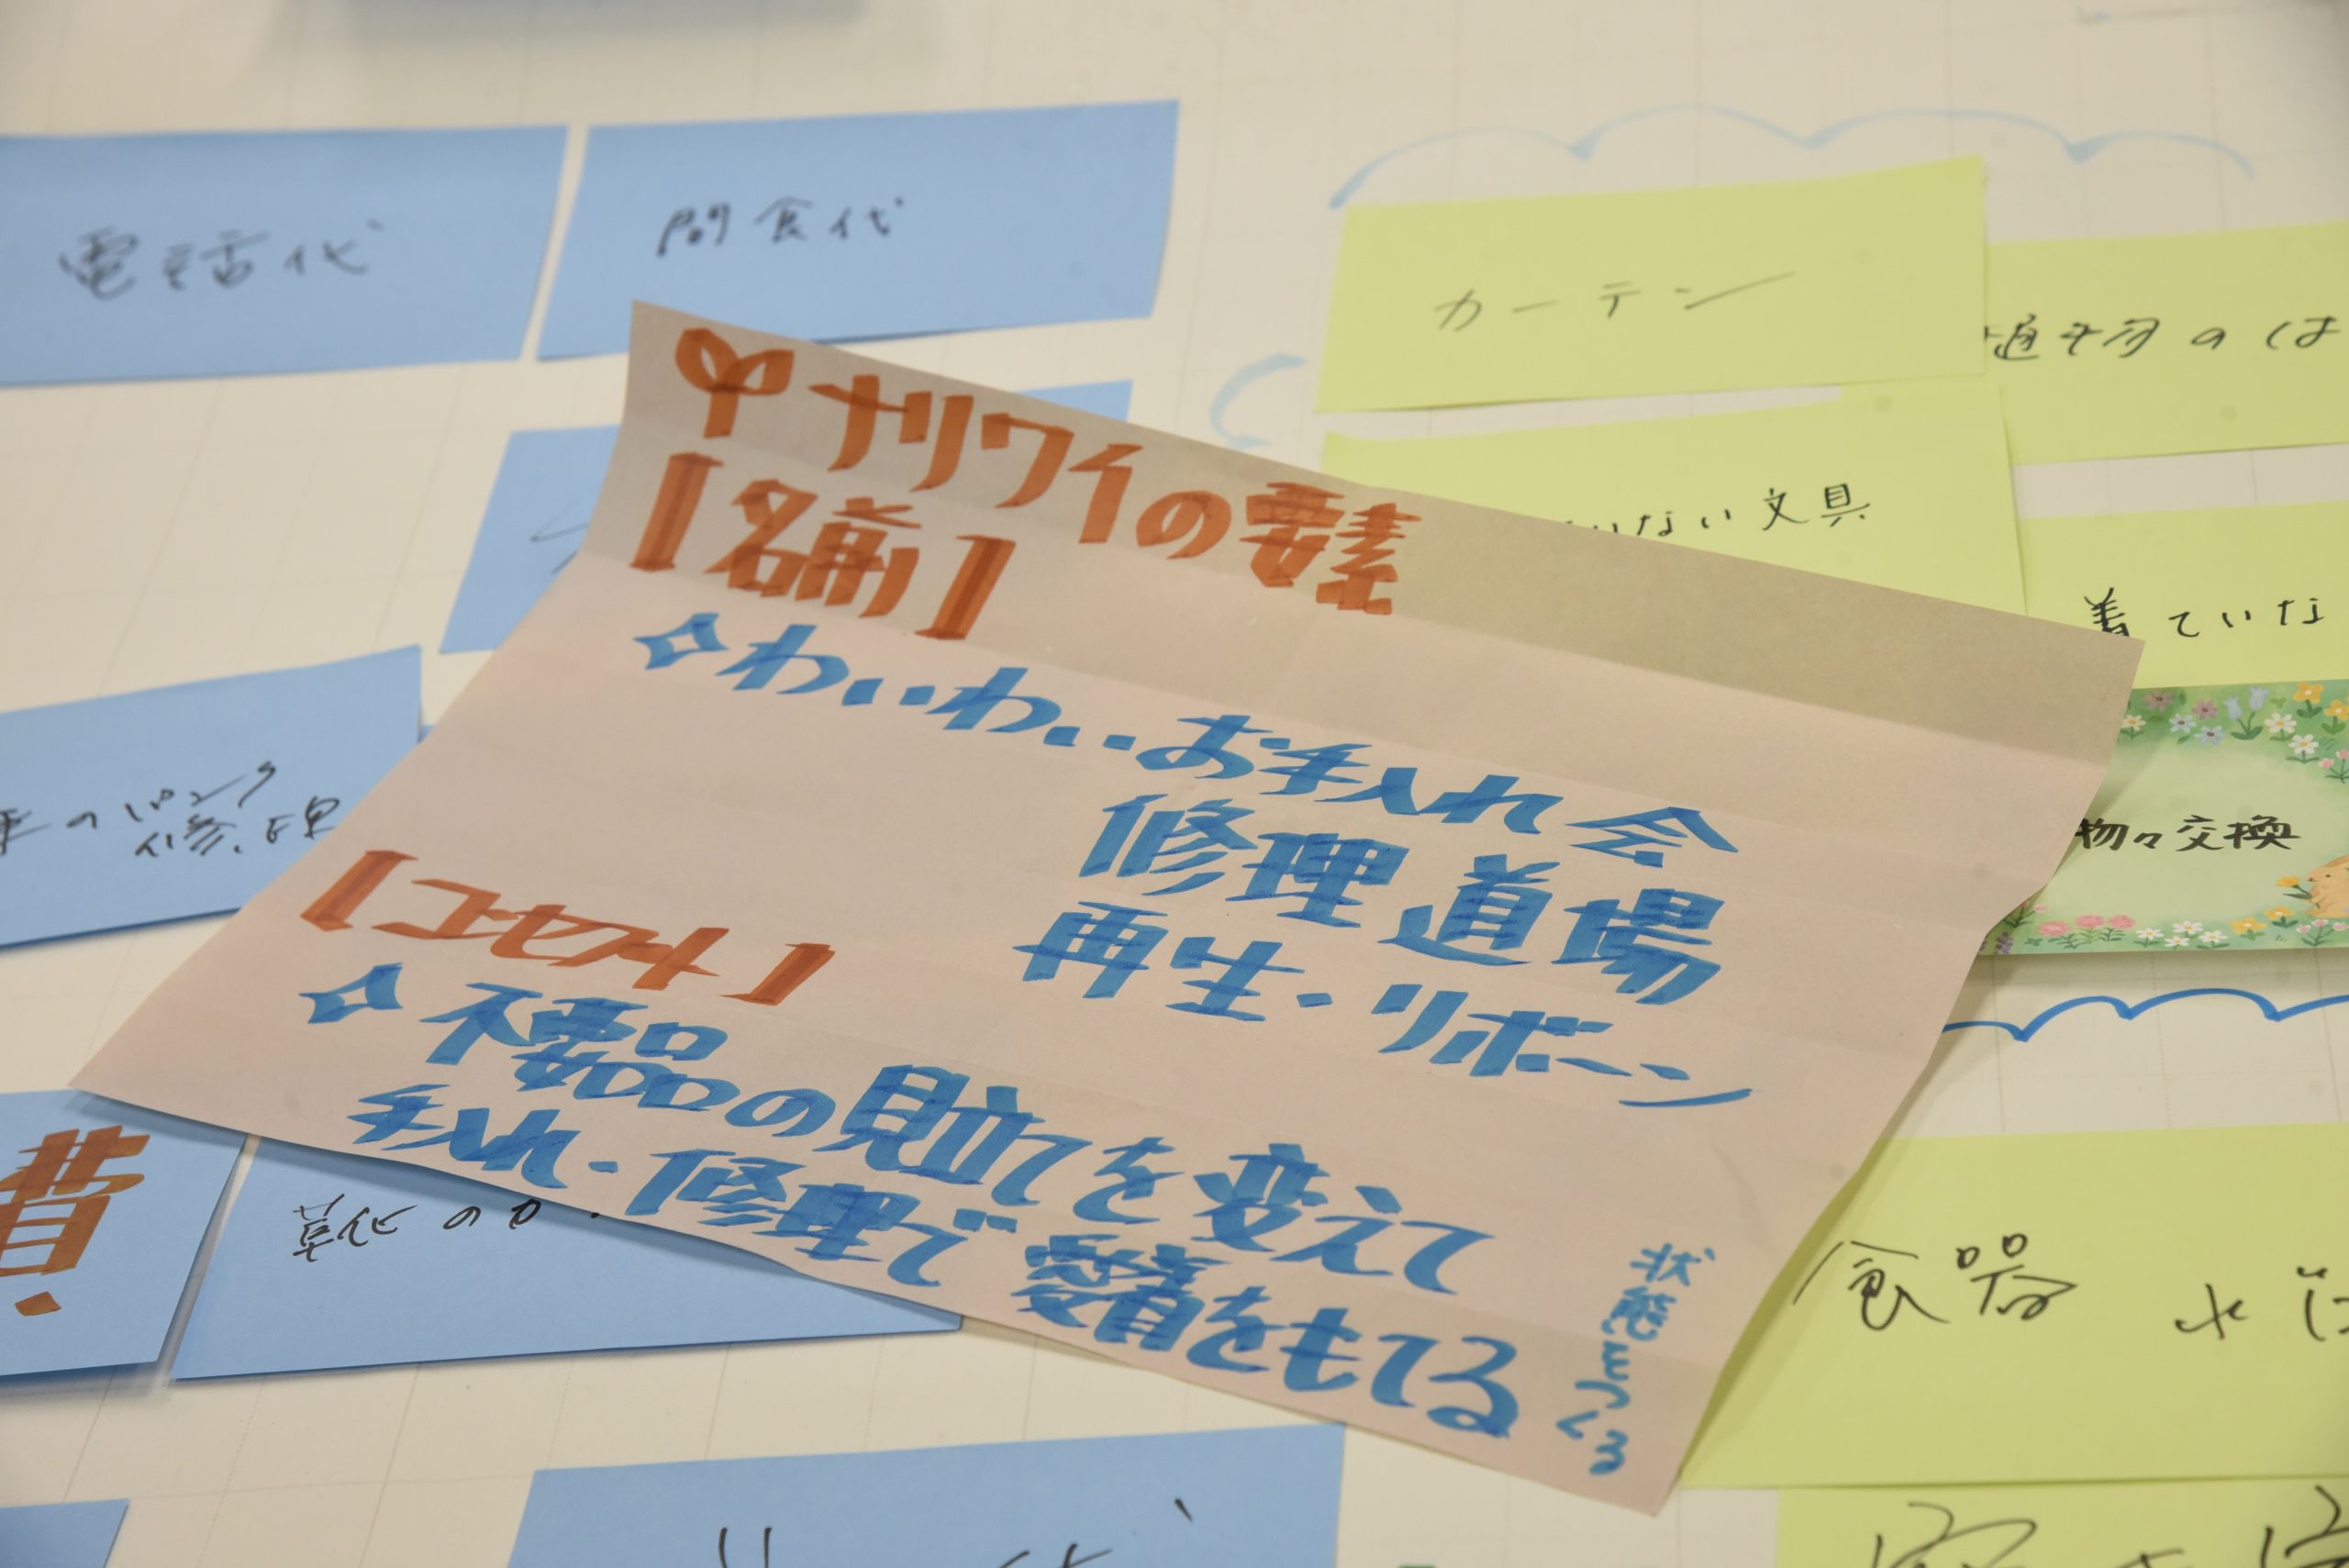 電話代
間食代
カーテン
植物のは
いない文具
着ていな
物々交換
ナリワイの要素
【名前】
わいわいお手入れ会
修理道場
再生・リボーン
【コンセプト】
不要品の貯れを変えて
手入れ・修理で愛着をもてる
状態をつくる
のパンク
修理
費!
草花の
食器